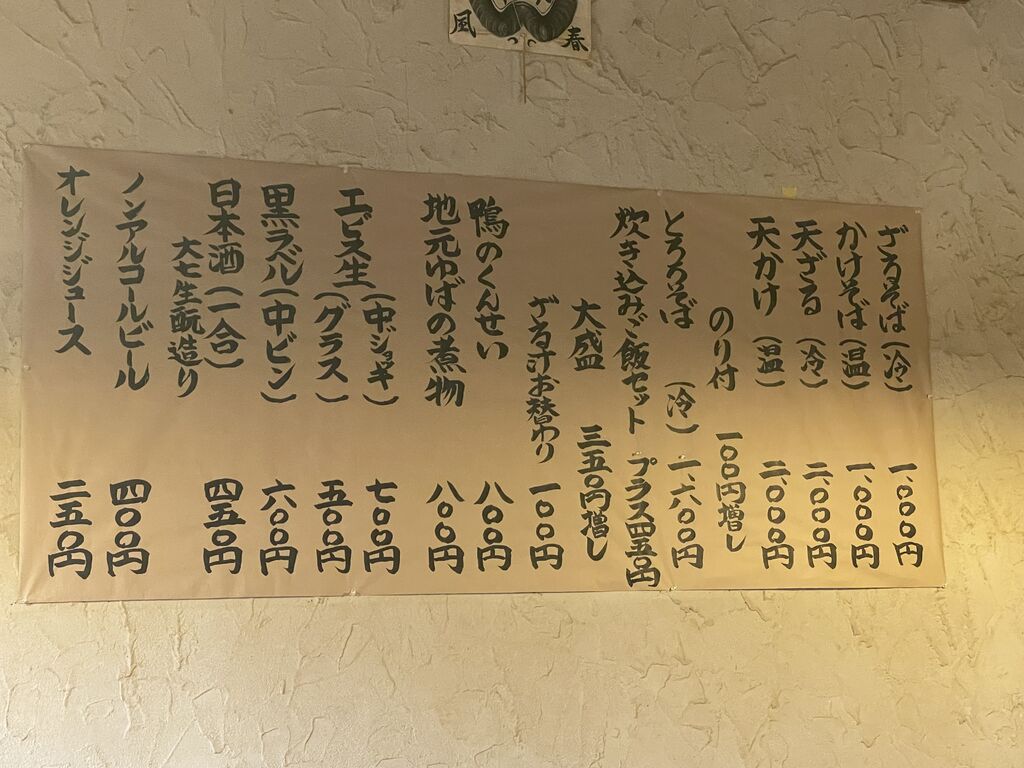 春
風
ざるそば（冷） 一、〇〇〇円
かけそば（温） 一、〇〇〇円
天ざる（冷） 二、〇〇〇円
天かけ（温） 二、〇〇〇円
のり付 一〇〇円増し
とろろそば（冷） 一、六〇〇円
炊き込みご飯セット プラス四五〇円
大盛 三五〇円増し
ざる汁お替わり 一〇〇円
鴨のくんせい 八〇〇円
地元ゆばの煮物 八〇〇円
エビス生（中ジョッキ） 七〇〇円
（グラス） 五〇〇円
黒ラベル（中ビン） 六〇〇円
日本酒（一合） 四五〇円
大七生酛造り
ノンアルコールビール 四〇〇円
オレンジジュース 二五〇円